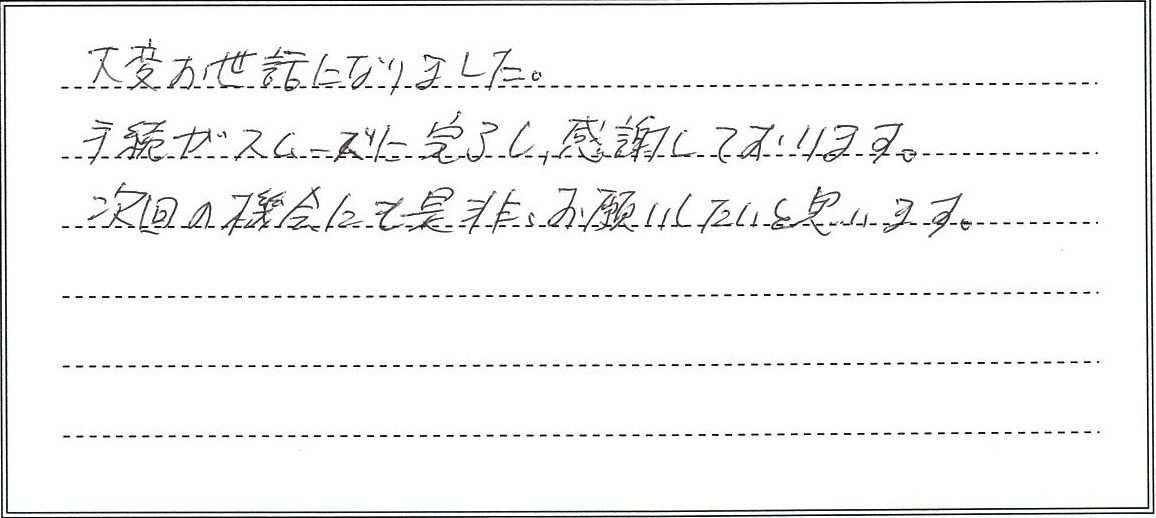 大変お世話になりました。
手続がスムーズに完了し、感謝しております。
次回の機会にも是非、お願いしたいと思います。